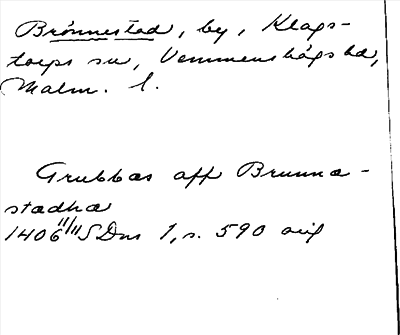 Brönnestad, by, Klags-
torps sn, Vemmenhögs hd,
Malm. l.
Grubbas aff Brunna-
stadha
1406 11/11 SDns 1, s. 590 orig